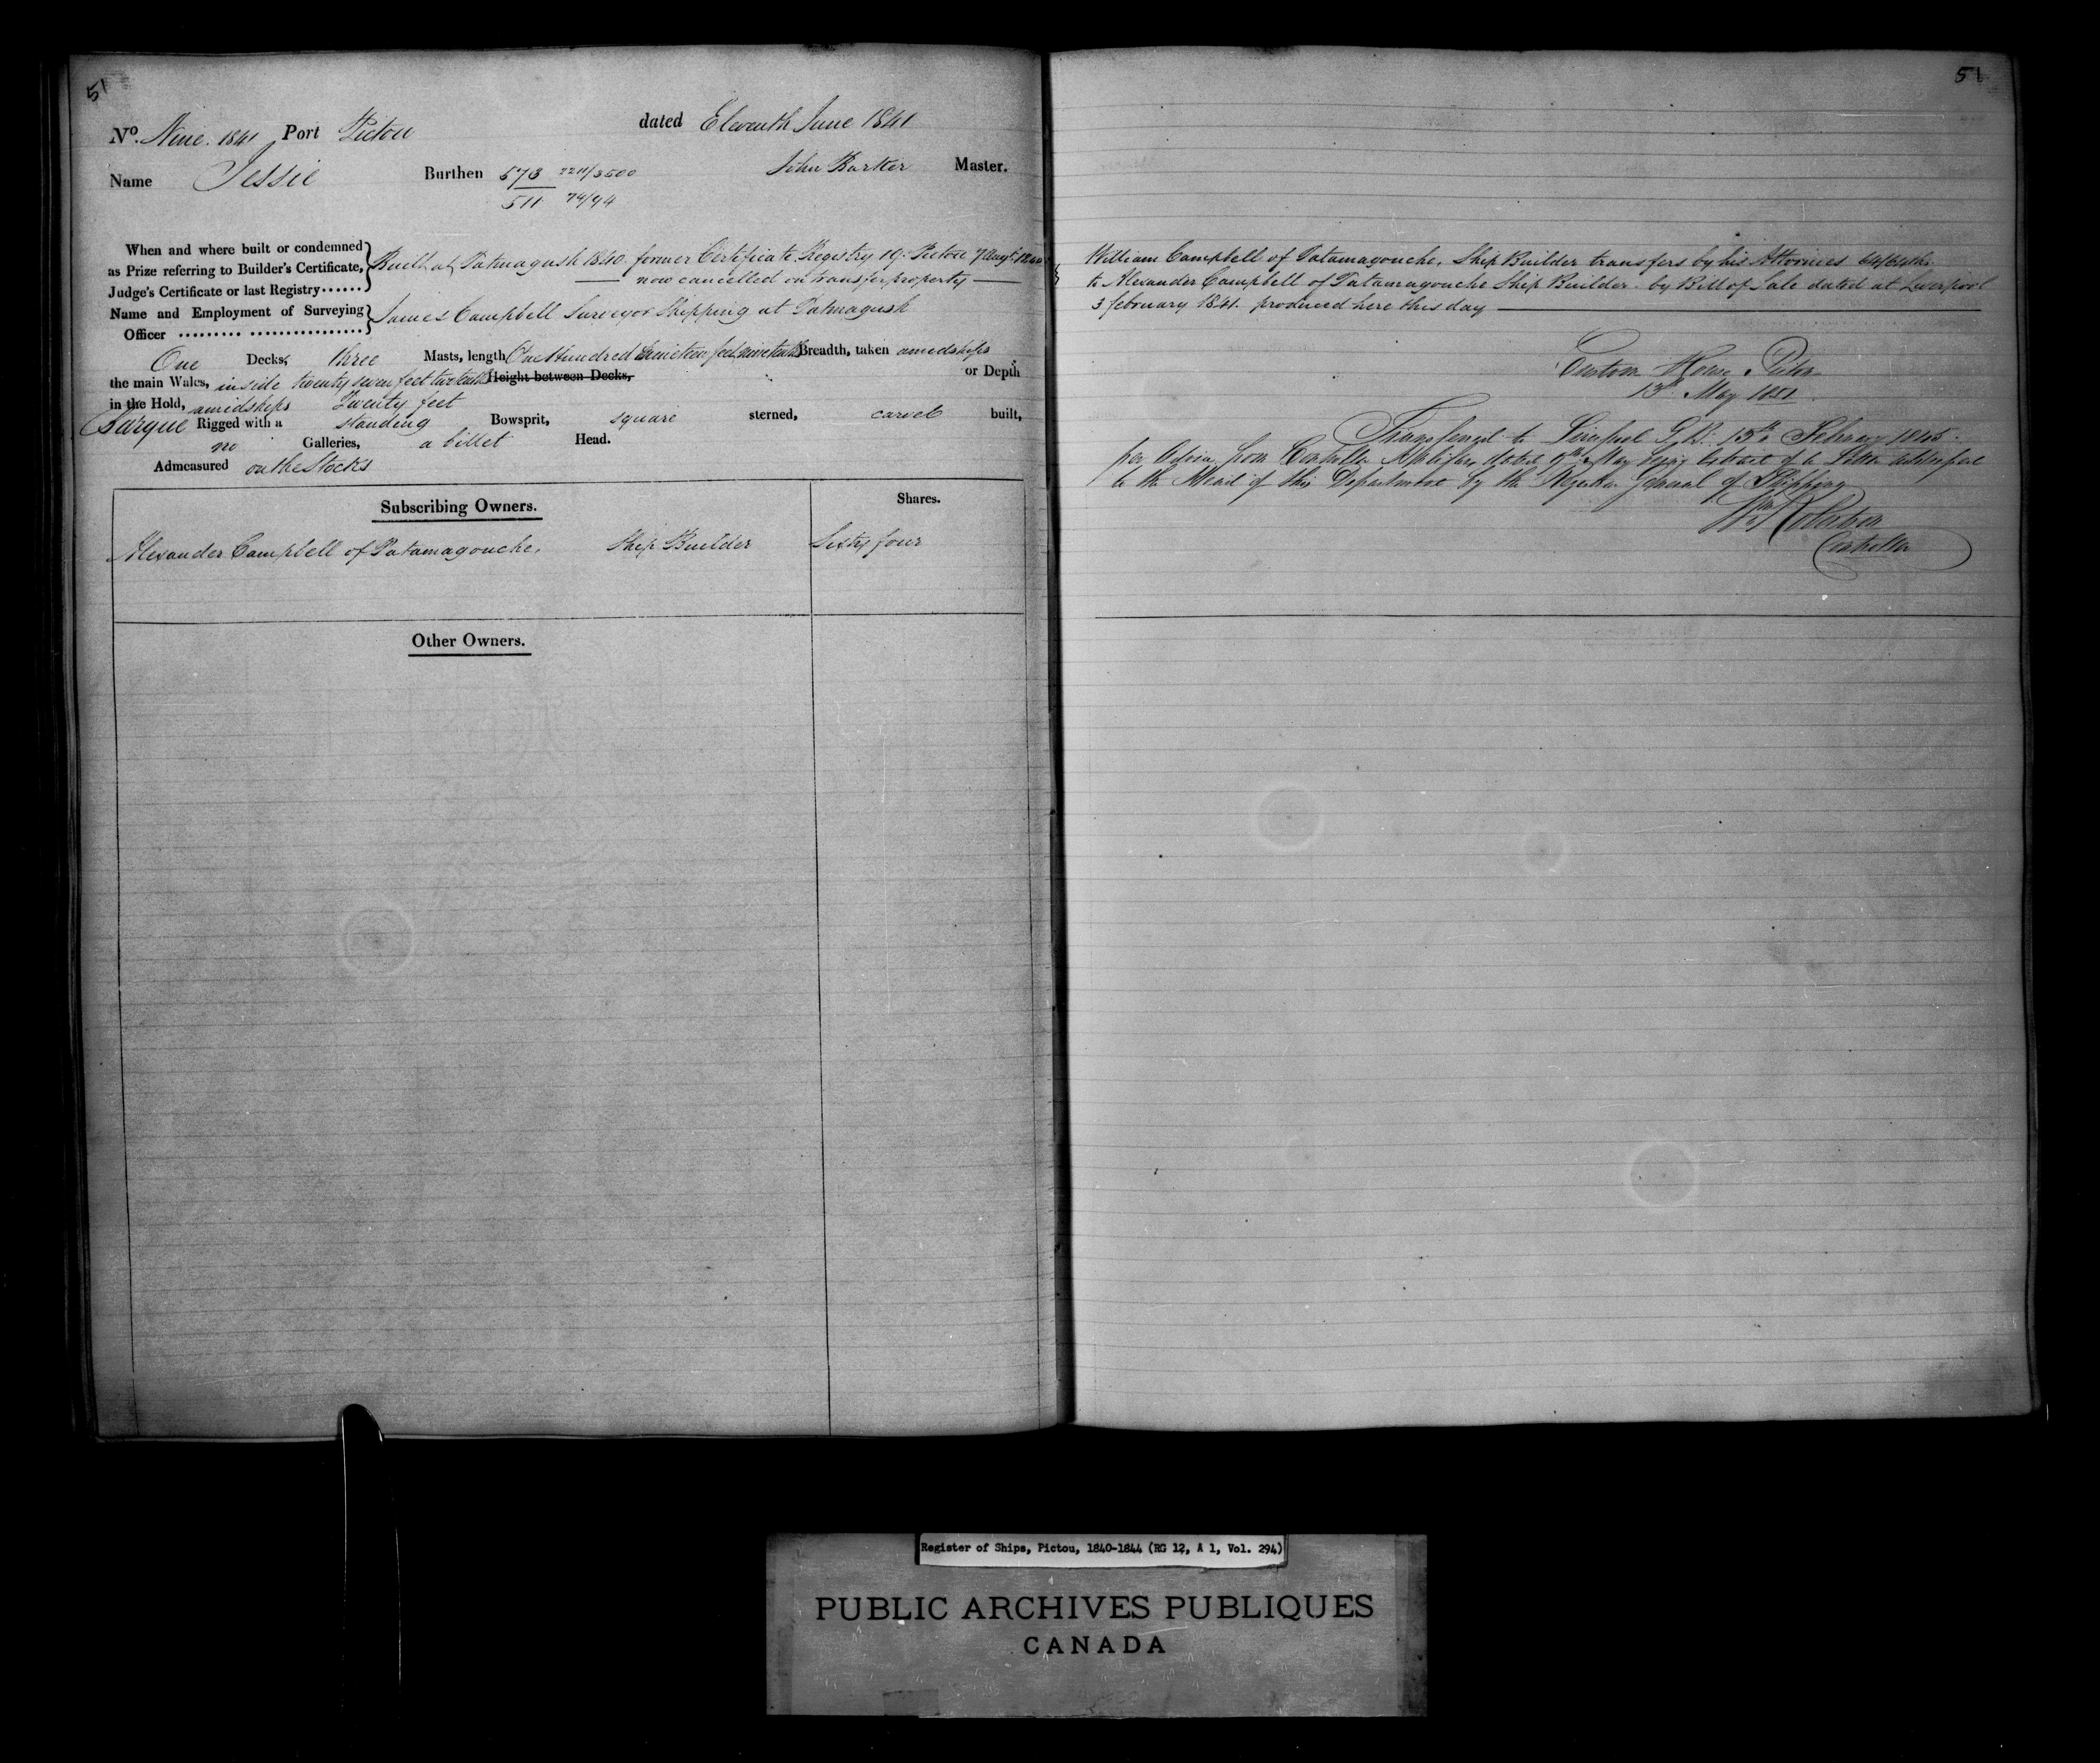 51
No. Nine. 1841 Port Pictou dated Eleventh June 1841
Name Jessie Burthen 573 2211/3500 John Barker Master.
511 74/94
When and where built or condemned
as Prize referring to Builder's Certificate,
Judge's Certificate or last Registry......
Built at Tatmagush 1840. former Certificate Registry 19. Pictou 7 Augt. 1840
now cancelled on transfer property
Name and Employment of Surveying
Officer ......... ................
James Campbell Surveyor Shipping at Tatmagush
One Decks, three Masts, length One Hundred feet Breadth, taken amidships
the main Wales, inside twenty seven feet two tenths Height between Decks, or Depth
in the Hold, amidships Twenty feet
Barque Rigged with a standing Bowsprit, square sterned, carvel built,
no Galleries, a billet Head.
Admeasured on the Stocks
Subscribing Owners. Shares.
Alexander Campbell of Tatamagouche, Ship Builder Sixty four
Other Owners.
51
William Campbell of Tatamagouche, Ship Builder transfers by his Attornies 64/64ths
to Alexander Campbell of Tatamagouche Ship Builder by Bill of Sale dated at Liverpool
3 february 1841. produced here this day
Custom House Pictou
13th May 1851
Transferred to Liverpool G.B. 13th February 1845.
per Advice from Controller Halifax, dated 9th May being Extract of a Letter addressed
to the Head of this Department by the Register General of Shipping
Robertson
Controller
Register of Ships, Pictou, 1840-1844 (RG 12, A 1, Vol. 294)
PUBLIC ARCHIVES PUBLIQUES
CANADA